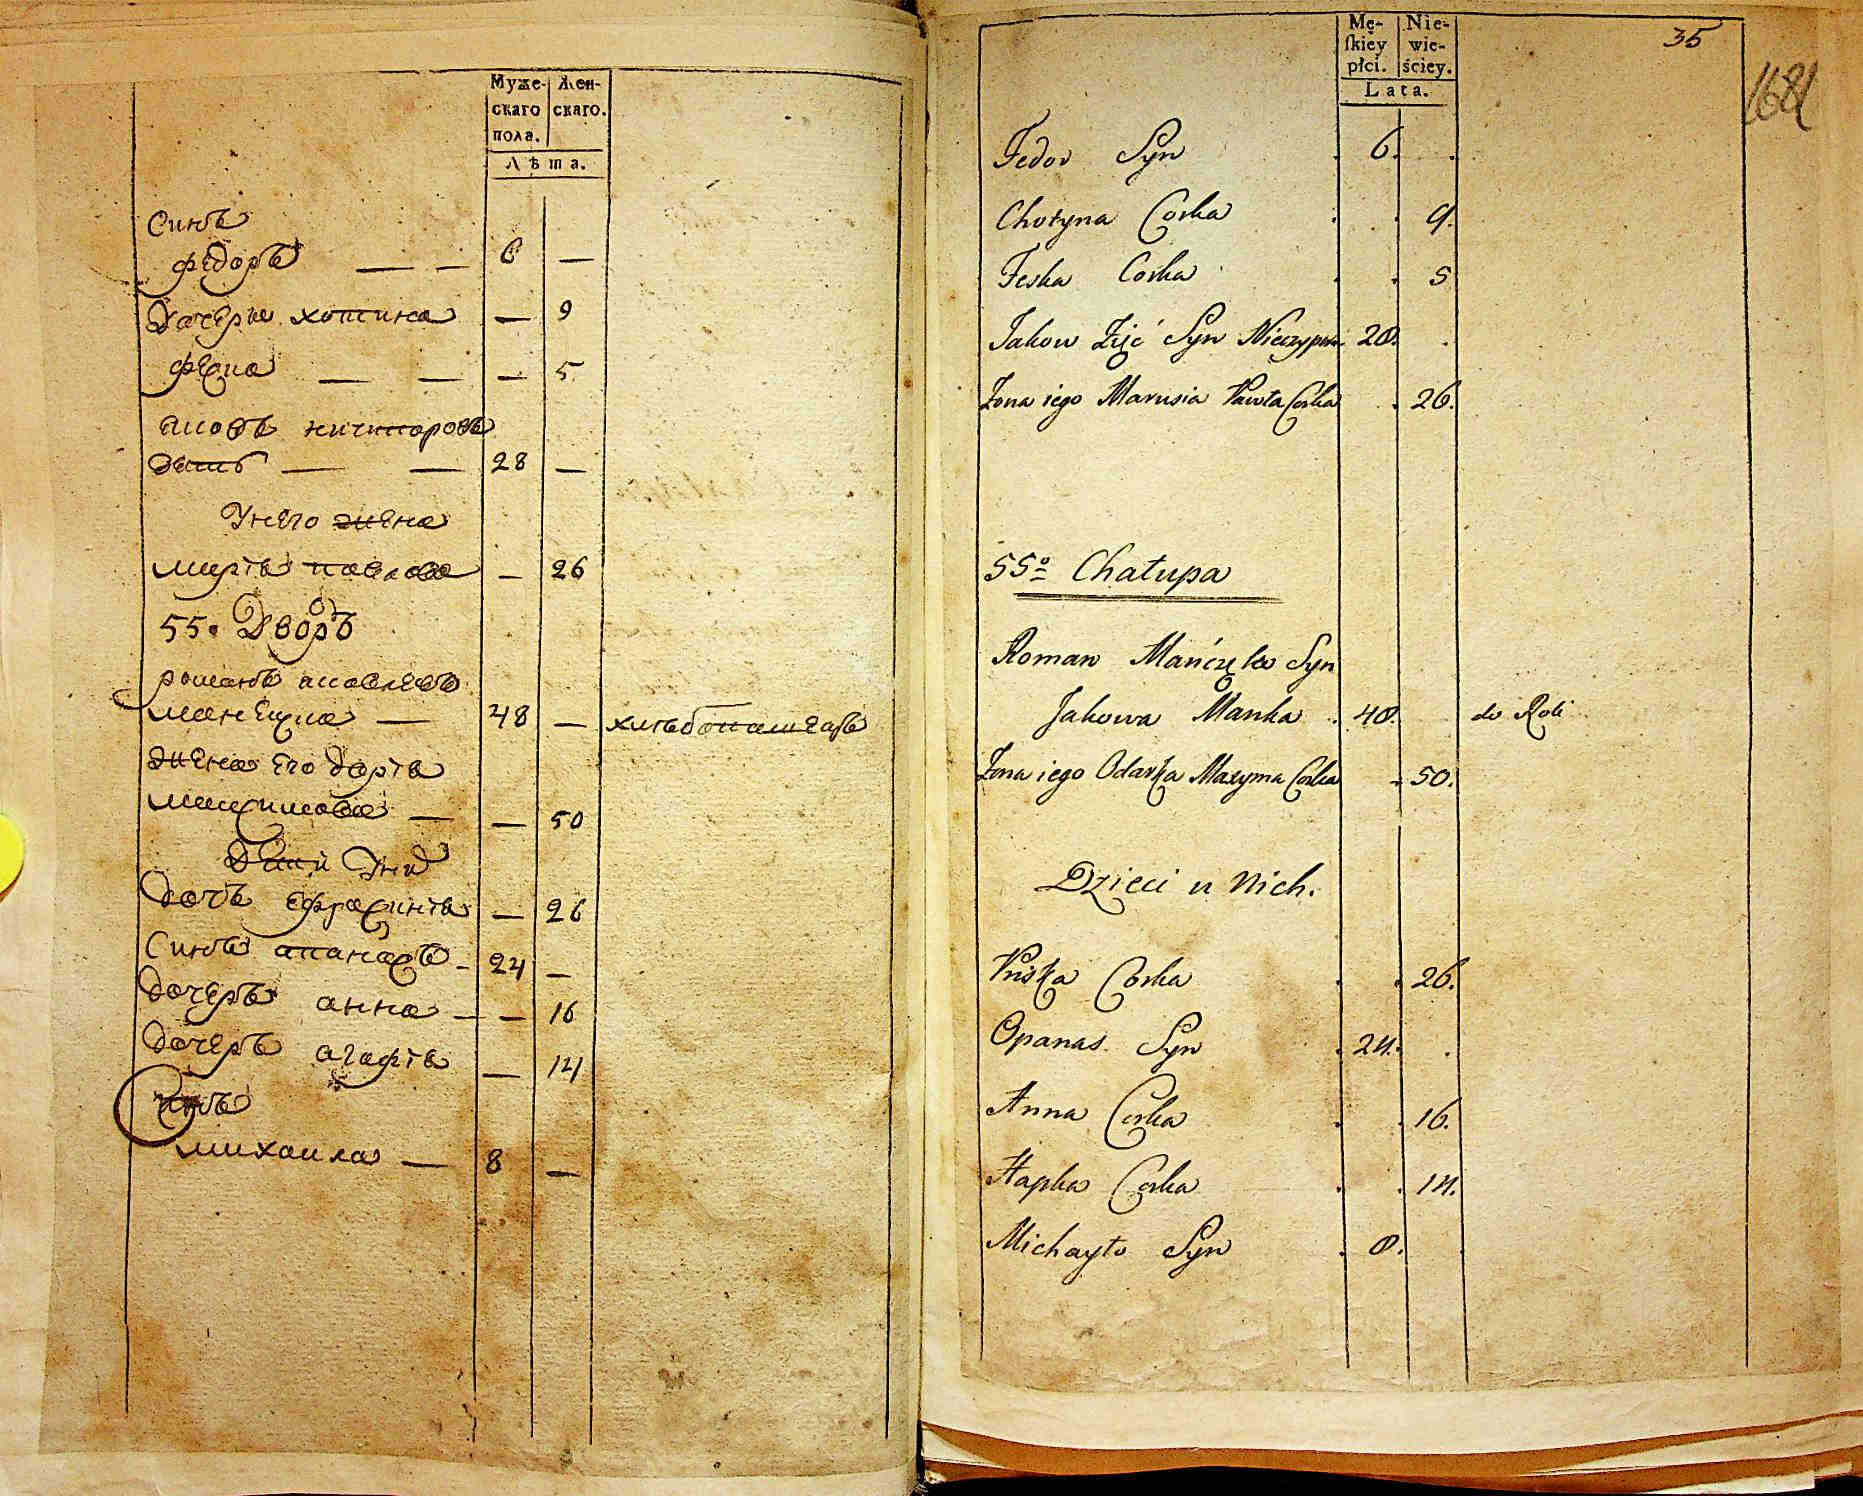 Муже-
скаго
пола.
Жен-
скаго.
Лѣта.
Синъ
федоръ — — 6 —
Дочери хотина — 9
феска — — — 5
яковъ ничипоровъ
зять — — 28 —
Унего жена
марѳа павлова — 26
55. Дворъ
романъ яковлевъ
манецка — 48 — хлебопашецъ
жена его дарѳа
максимова — — 50
Дети унид
дочъ ефросинѳа — 26
Синъ апанасъ — 24 —
дочеръ анна — — 16
дочеръ агафѳа — 14
Синъ
михаила — 8 —
Mę-
skiéy
płci.
Nie-
wie-
ściey.
Lata.
35
1681
Fedor Syn . 6. .
Chotyna Corka . . 9.
Feska Corka . . 5
Jakow Zięć Syn Nieczypora 28. .
Żona iego Marusia Pawła Corka . 26.
55º Chałupa
Roman Syn
Jakowa Manka . 48. do Roli
Żona iego Odarka Maxyma Corka . 50.
Dzieci u Nich.
Pryska Corka . . 26.
Opanas Syn . 24. .
Anna Corka . . 16.
Hapka Corka . . 14.
Michayło Syn . 8.